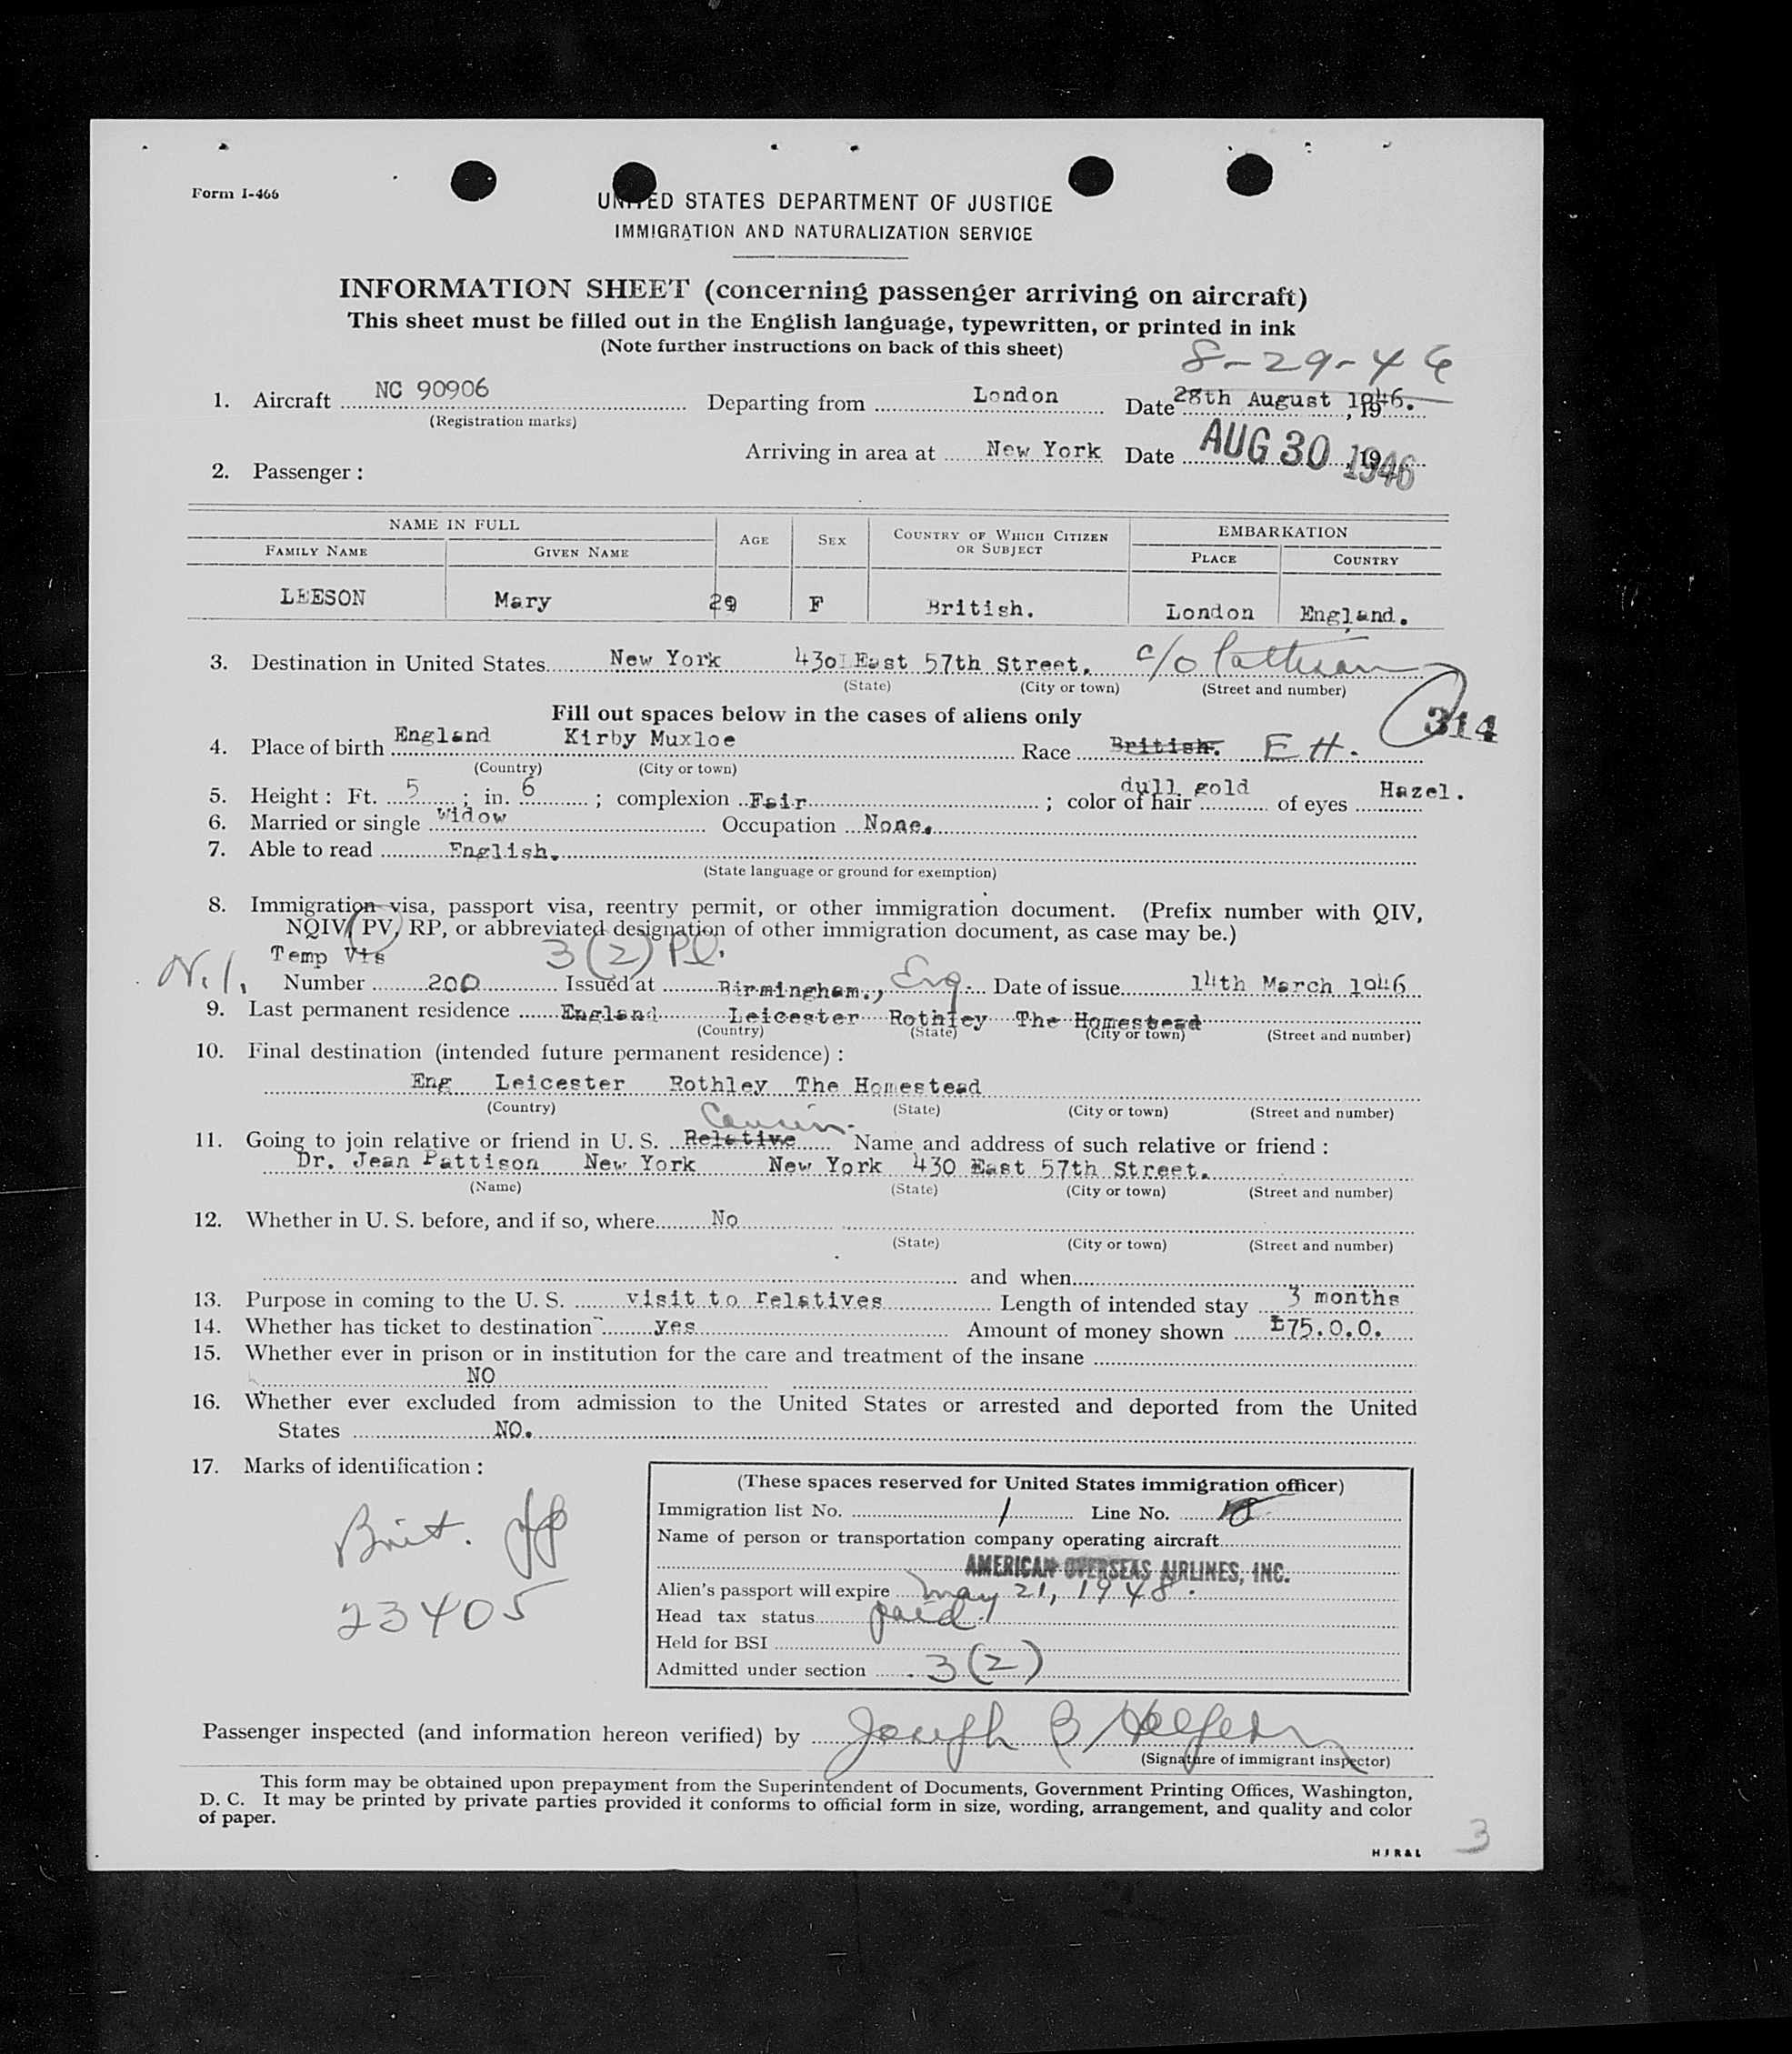 Form I-466
UNITED STATES DEPARTMENT OF JUSTICE
IMMIGRATION AND NATURALIZATION SERVICE
INFORMATION SHEET (concerning passenger arriving on aircraft)
This sheet must be filled out in the English language, typewritten, or printed in ink
(Note further instructions on back of this sheet)
8-29-46
1. Aircraft NC 90906 Departing from London Date 28th August 1946. , 19
(Registration marks)
Arriving in area at New York Date AUG 30 1946 , 19
2. Passenger :
NAME IN FULL AGE SEX COUNTRY OF WHICH CITIZEN OR SUBJECT EMBARKATION
FAMILY NAME GIVEN NAME PLACE COUNTRY
LEESON Mary 29 F British. London England.
3. Destination in United States New York 430 East 57th Street. c/o
(State) (City or town) (Street and number)
314
Fill out spaces below in the cases of aliens only
4. Place of birth England Kirby Muxloe Race British. E H.
(Country) (City or town)
5. Height : Ft. 5 ; in. 6 ; complexion Fair ; color of hair dull gold of eyes Hazel.
6. Married or single Widow Occupation None.
7. Able to read English.
(State language or ground for exemption)
8. Immigration visa, passport visa, reentry permit, or other immigration document. (Prefix number with QIV,
NQIV, PV, RP, or abbreviated designation of other immigration document, as case may be.)
Temp Vis 3(2) Pl.
N.I. Number 200 Issued at Birmingham., Eng. Date of issue 14th March 1946
9. Last permanent residence England Leicester Rothley The Homestead
(Country) (State) (City or town) (Street and number)
10. Final destination (intended future permanent residence) :
Eng Leicester Rothley The Homestead
(Country) (State) (City or town) (Street and number)
Cousin.
11. Going to join relative or friend in U. S. Relative Name and address of such relative or friend :
Dr. Jean Pattison New York New York 430 East 57th Street.
(Name) (State) (City or town) (Street and number)
12. Whether in U. S. before, and if so, where No
(State) (City or town) (Street and number)
and when
13. Purpose in coming to the U. S. visit to relatives Length of intended stay 3 months
14. Whether has ticket to destination yes Amount of money shown £75.0.0.
15. Whether ever in prison or in institution for the care and treatment of the insane
NO
16. Whether ever excluded from admission to the United States or arrested and deported from the United
States NO.
17. Marks of identification :
Brit. pp
23405
(These spaces reserved for United States immigration officer)
Immigration list No. 1 Line No. 18
Name of person or transportation company operating aircraft
AMERICAN OVERSEAS AIRLINES, INC.
Alien's passport will expire May 21, 1948.
Head tax status paid
Held for BSI
Admitted under section 3(2)
Passenger inspected (and information hereon verified) by Joseph B
(Signature of immigrant inspector)
This form may be obtained upon prepayment from the Superintendent of Documents, Government Printing Offices, Washington,
D. C. It may be printed by private parties provided it conforms to official form in size, wording, arrangement, and quality and color
of paper.
HJR&L
3